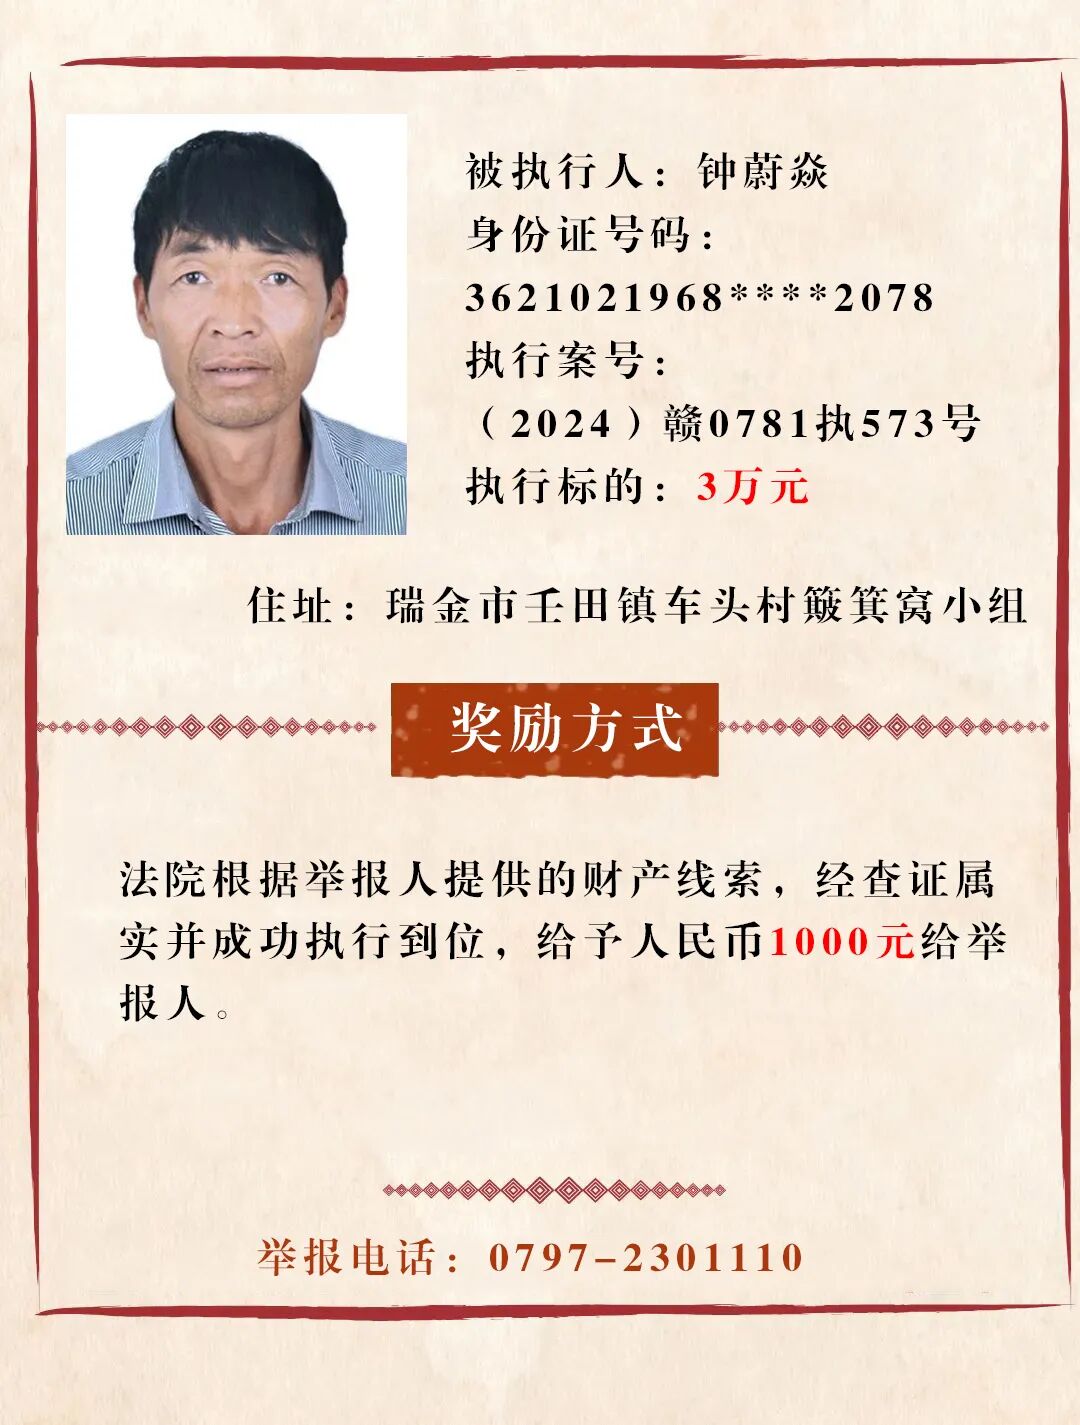 被执行人：钟蔚焱
身份证号码：
3621021968****2078
执行案号：
（2024）赣0781执573号
执行标的：3万元
住址：瑞金市壬田镇车头村簸箕窝小组
奖励方式
法院根据举报人提供的财产线索，经查证属
实并成功执行到位，给予人民币1000元给举
报人。
举报电话：0797-2301110